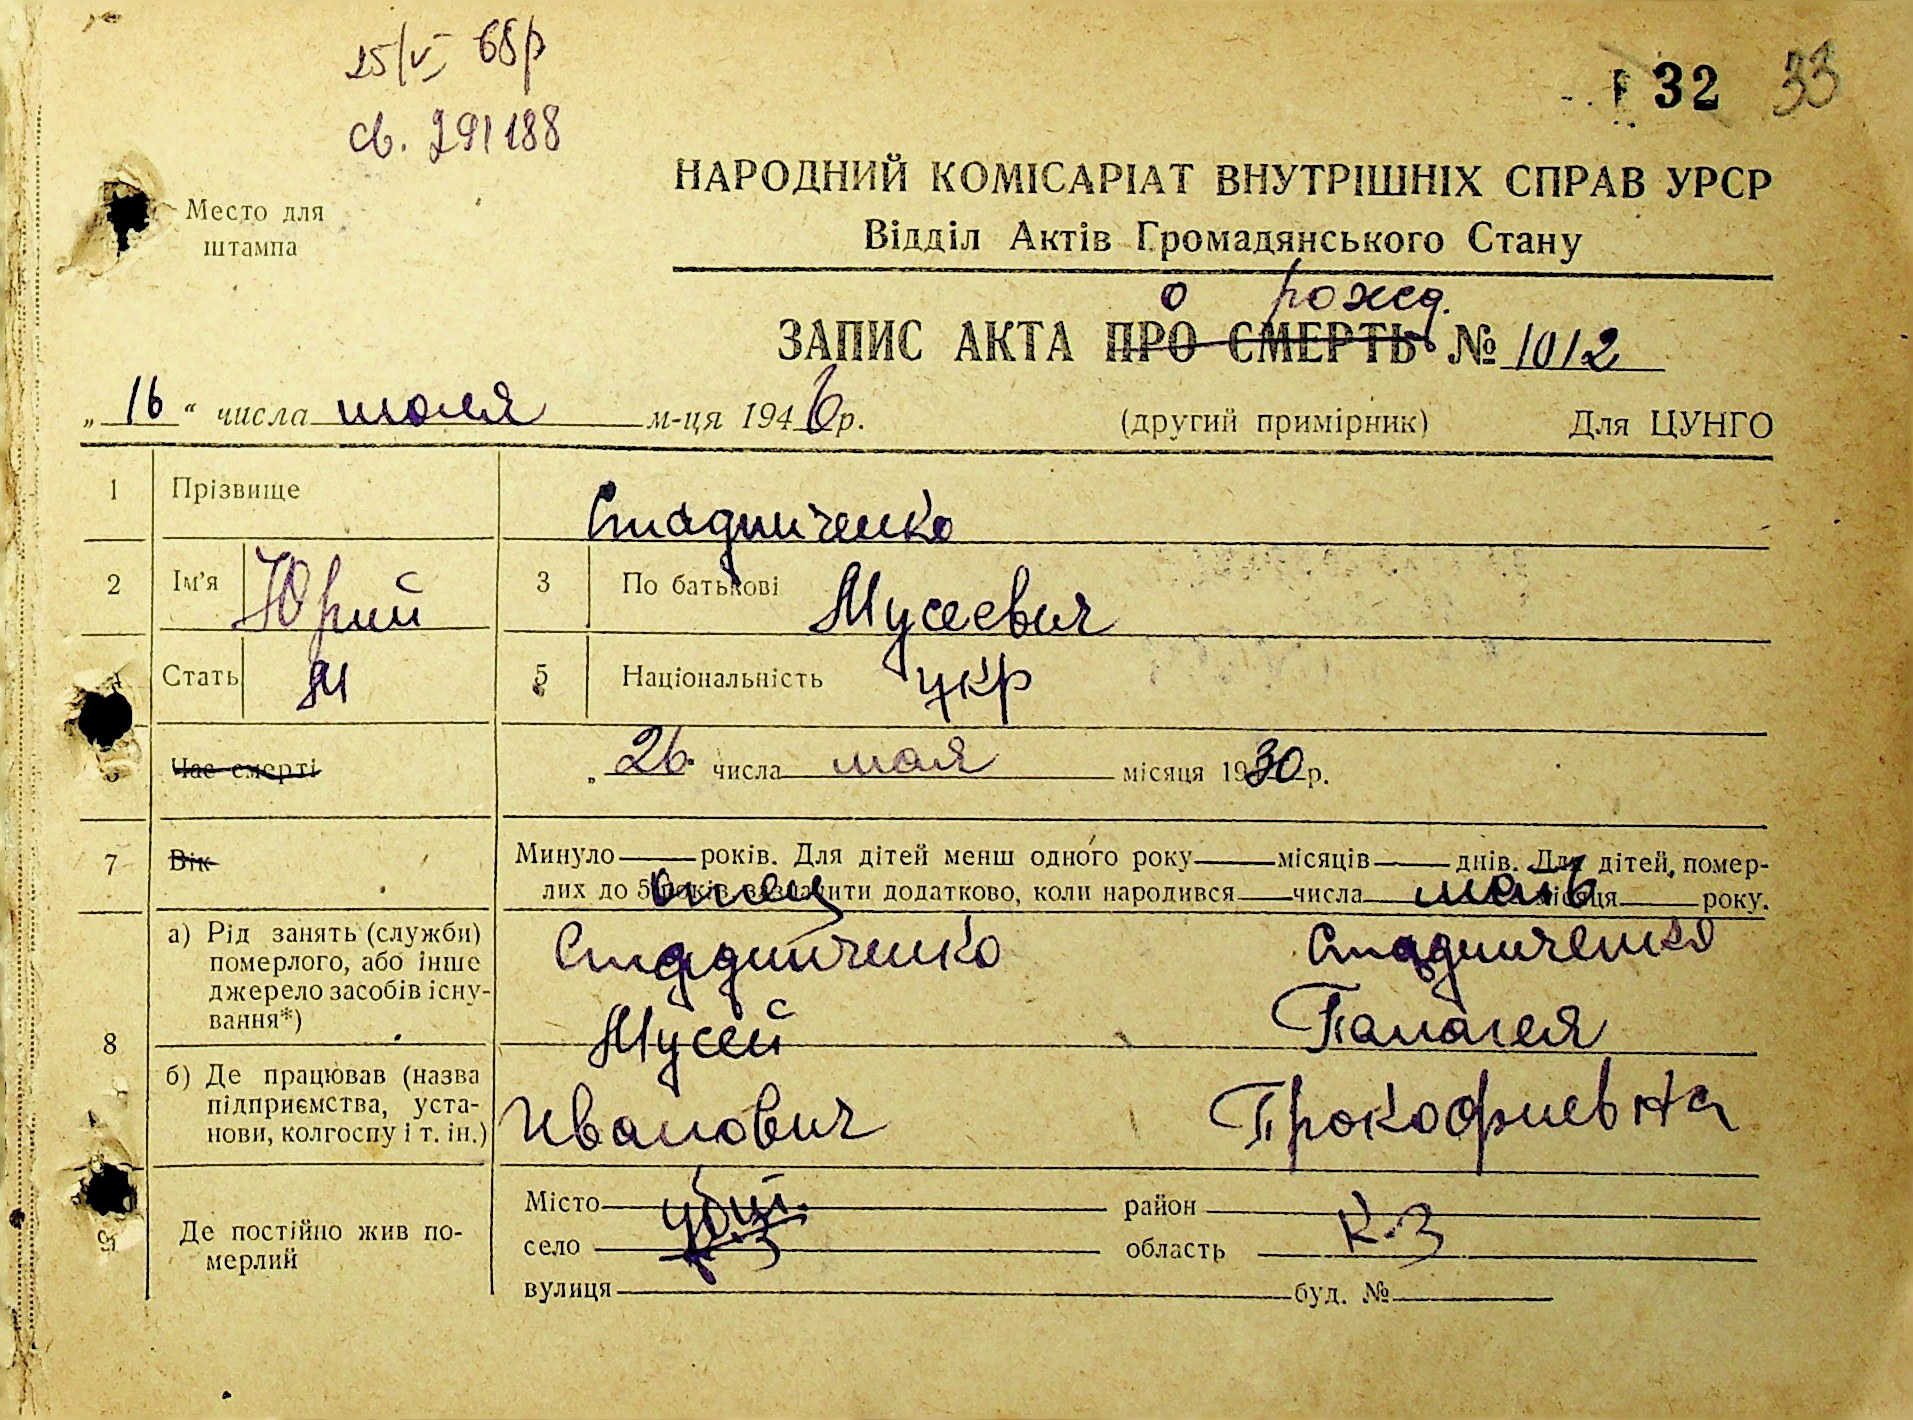 25/V 68р
св. 291188
32 33
Место для
штампа
НАРОДНИЙ КОМІСАРІАТ ВНУТРІШНІХ СПРАВ УРСР
Відділ Актів Громадянського Стану
о рожд.
ЗАПИС АКТА ПРО СМЕРТЬ № 1012
„ 16 “ числа июля м-ця 1946 р. (другий примірник) Для ЦУНГО
1 Прізвище Стадниченко
2 Ім’я Юрий 3 По батькові Мусеевич
Стать М 5 Національність укр
Час смерті „ 26 числа мая місяця 1930 р.
7 Вік Минуло років. Для дітей менш одного року місяців днів. Для дітей, помер-
лих до 5 років зазначити додатково, коли народився числа місяця року.
отец мать
8 а) Рід занять (служби)
померлого, або інше
джерело засобів існу-
вання*)
Стадниченко Стадниченко
Мусей Палагея
б) Де працював (назва
підприємства, уста-
нови, колгоспу і т. ін.)
Иванович Прокофиевна
Де постійно жив по-
мерлий
Місто район
село область К-З
вулиця буд. №